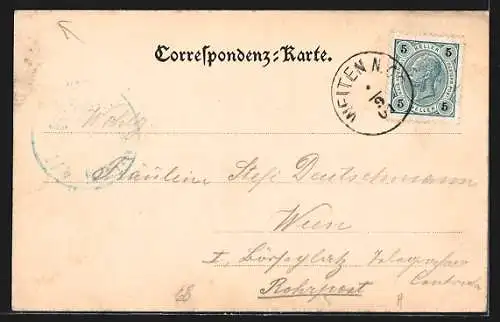 Correspondenz-Karte.
5 HELLER 5
5 HELLER 5
WEITEN N.Ö.
Wohlg
Fräulein Stefi Deutschmann
Wien
I. Börseplatz Telegrafen
Centrale
Rohrpost